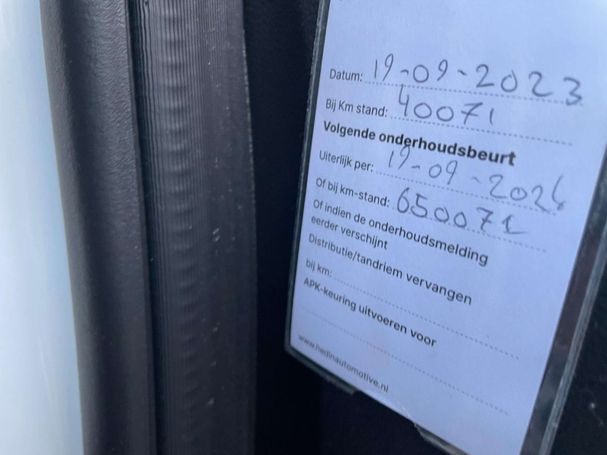 Datum: 19-09-2023
Bij Km stand: 40071
Volgende onderhoudsbeurt
Uiterlijk per: 19-09-2026
Of bij km-stand: 650071
Of indien de onderhoudsmelding
eerder verschijnt
Distributie/tandriem vervangen
bij km:
APK-keuring uitvoeren voor
www.hedinautomotive.nl